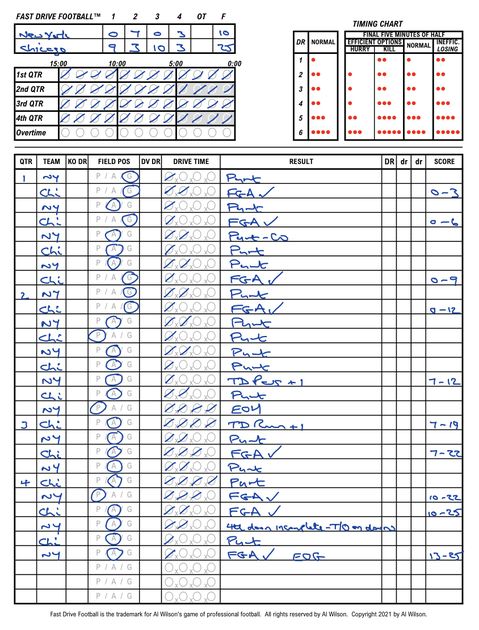 FAST DRIVE FOOTBALL™ 1 2 3 4 OT F
New York 0 7 0 3 10
Chicago 9 3 10 3 25
15:00 10:00 5:00 0:00
1st QTR
2nd QTR
3rd QTR
4th QTR
Overtime
TIMING CHART
FINAL FIVE MINUTES OF HALF
DR NORMAL EFFICIENT OPTIONS NORMAL INEFFIC.
HURRY KILL LOSING
1
2
3
4
5
6
QTR TEAM KO DR FIELD POS DV DR DRIVE TIME RESULT DR dr dr SCORE
1 NY P / A / G Punt
Chi P / A / G FGA ✓ 0-3
NY P / A / G Punt
Chi P / A / G FGA ✓ 0-6
NY P / A / G Punt-CO
Chi P / A / G Punt
NY P / A / G Punt
Chi P / A / G FGA ✓ 0-9
2 NY P / A / G Punt
Chi P / A / G FGA ✓ 0-12
NY P / A / G Punt
Chi P / A / G Punt
NY P / A / G Punt
Chi P / A / G Punt
NY P / A / G TD Pass +1 7-12
Chi P / A / G Punt
NY P / A / G EOH
3 Chi P / A / G TD Run +1 7-19
NY P / A / G Punt
Chi P / A / G FGA ✓ 7-22
NY P / A / G Punt
4 Chi P / A / G Punt
NY P / A / G FGA ✓ 10-22
Chi P / A / G FGA ✓ 10-25
NY P / A / G 4th down incomplete-T/O on downs
Chi P / A / G Punt
NY P / A / G FGA ✓ EOG 13-25
P / A / G
P / A / G
P / A / G
Fast Drive Football is the trademark for Al Wilson's game of professional football. All rights reserved by Al Wilson. Copyright 2021 by Al Wilson.